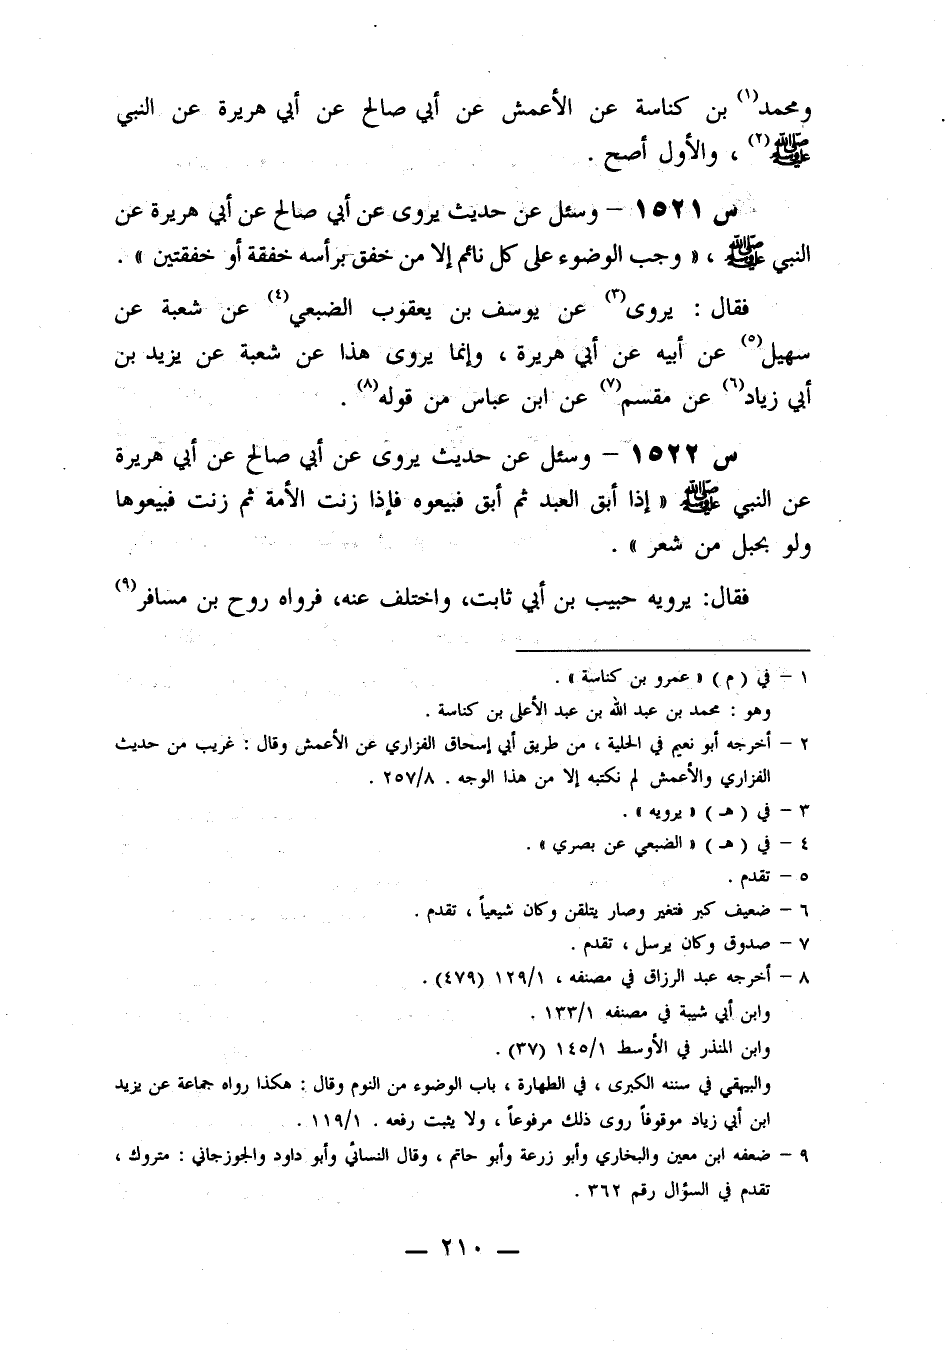 ومحمد(١) بن كناسة عن الأعمش عن أبي صالح عن أبي هريرة عن النبي
ﷺ(٢) ، والأول أصح .
س ١٥٢١ – وسئل عن حديث يروى عن أبي صالح عن أبي هريرة عن
النبي ﷺ ، « وجب الوضوء على كل نائم إلا من خفق برأسه خفقة أو خفقتين » .
فقال : يروى(٣) عن يوسف بن يعقوب الضبعي(٤) عن شعبة عن
سهيل(٥) عن أبيه عن أبي هريرة ، وإنما يروى هذا عن شعبة عن يزيد بن
أبي زياد(٦) عن مقسم(٧) عن ابن عباس من قوله(٨) .
س ١٥٢٢ – وسئل عن حديث يروى عن أبي صالح عن أبي هريرة
عن النبي ﷺ « إذا أبق العبد ثم أبق فبيعوه فإذا زنت الأمة ثم زنت فبيعوها
ولو بحبل من شعر » .
فقال: يرويه حبيب بن أبي ثابت، واختلف عنه، فرواه روح بن مسافر(٩)
١ – في ( م ) « عمرو بن كناسة » .
وهو : محمد بن عبد الله بن عبد الأعلى بن كناسة .
٢ – أخرجه أبو نعيم في الحلية ، من طريق أبي إسحاق الفزاري عن الأعمش وقال : غريب من حديث
الفزاري والأعمش لم نكتبه إلا من هذا الوجه . ٢٥٧/٨ .
٣ – في ( هـ ) « يرويه » .
٤ – في ( هـ ) « الضبعي عن بصري » .
٥ – تقدم .
٦ – ضعيف كبر فتغير وصار يتلقن وكان شيعياً ، تقدم .
٧ – صدوق وكان يرسل ، تقدم .
٨ – أخرجه عبد الرزاق في مصنفه ، ١٢٩/١ (٤٧٩) .
وابن أبي شيبة في مصنفه ١٣٣/١ .
وابن المنذر في الأوسط ١٤٥/١ (٣٧) .
والبيهقي في سننه الكبرى ، في الطهارة ، باب الوضوء من النوم وقال : هكذا رواه جماعة عن يزيد
ابن أبي زياد موقوفاً روى ذلك مرفوعاً ، ولا يثبت رفعه . ١١٩/١ .
٩ – ضعفه ابن معين والبخاري وأبو زرعة وأبو حاتم ، وقال النسائي وأبو داود والجوزجاني : متروك ،
تقدم في السؤال رقم ٣٦٢ .
— ٢١٠ —